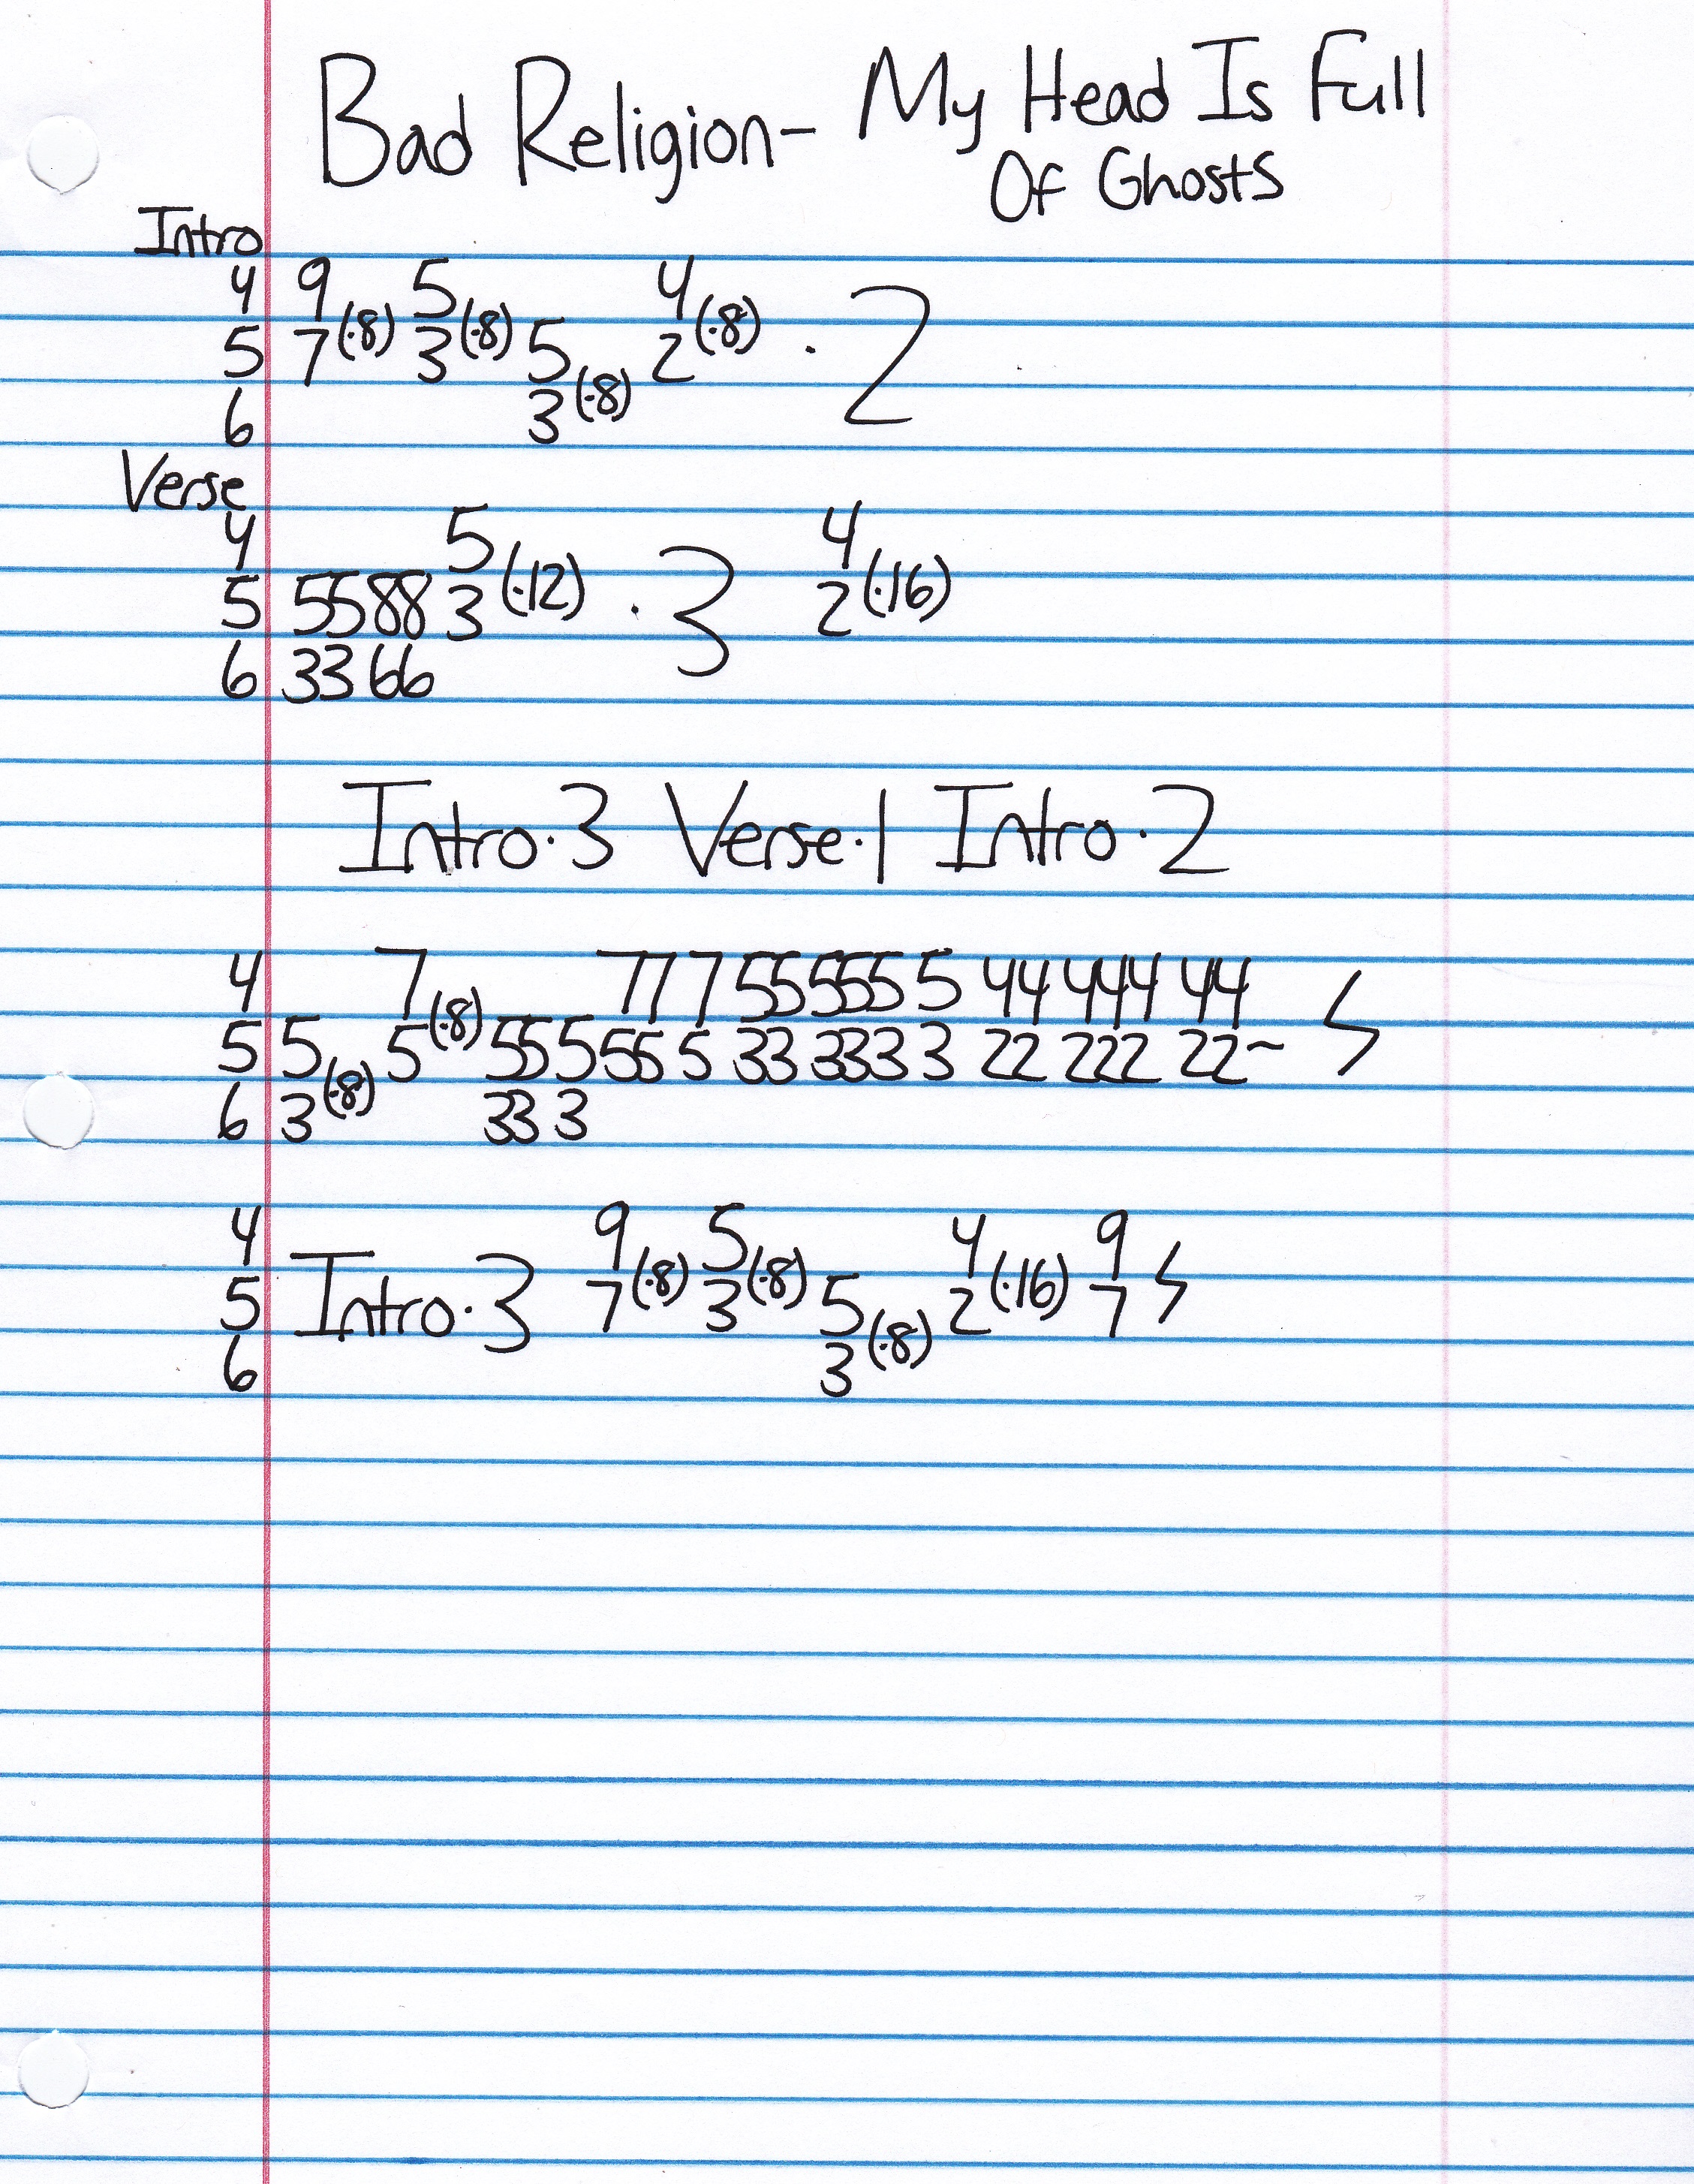 Bad Religion- My Head Is Full
Of Ghosts
Intro
4 9 5 4
5 7(·8) 3(·8) 5 2(·8) · 2
6 3(·8)
Verse
4 5 4
5 5588 3(·12) · 3 2(·16)
6 33 66
Intro·3 Verse·1 Intro·2
4 7 77 7 55 555 5 44 444 44
5 5 5(·8) 55 5 55 5 33 333 3 22 222 22~
6 3(·8) 33 3
4 9 5 4 9
5 Intro·3 7(·8) 3(·8) 5 2(·16) 7
6 3(·8)